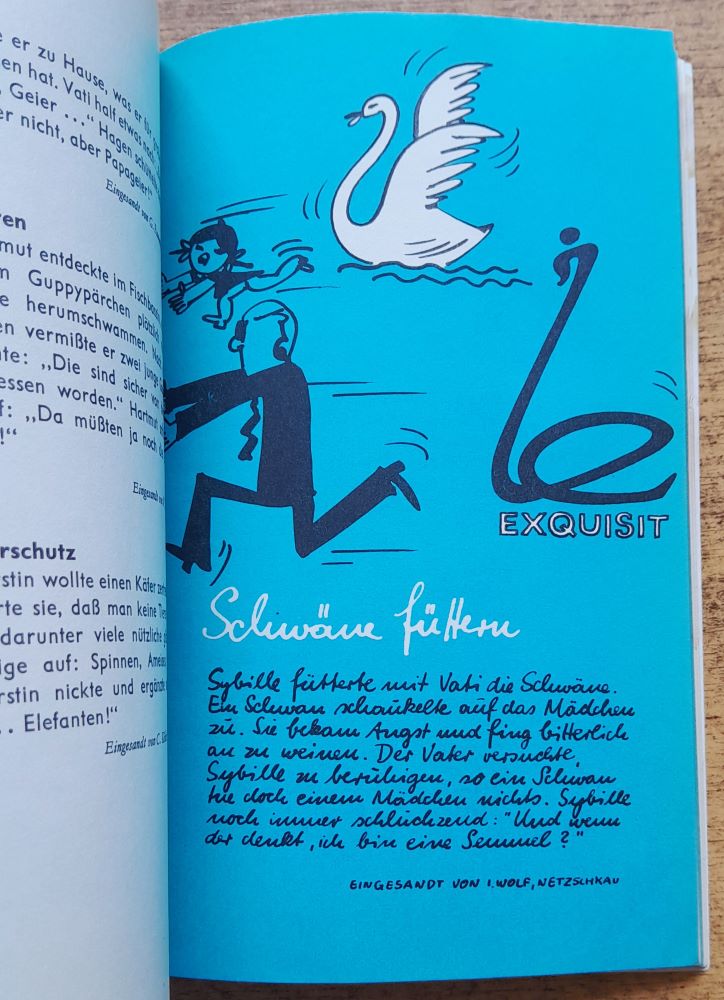 er zu Hause, was er für
en hat. Vati half etwas
Geier ..." Hagen
er nicht, aber Papageie!"
Eingesandt von G.
ren
mut entdeckte im
m Guppypärchen plötzlich
e herumschwammen.
en vermißte er zwei junge
te: „Die sind sicher von
essen worden." Hartmut
f: „Da müßten ja noch die
!"
Eingesandt
rschutz
rstin wollte einen Käfer
rte sie, daß man keine
darunter viele nützliche
ige auf: Spinnen,
rstin nickte und
. . Elefanten!"
Eingesandt von C.
EXQUISIT
Schwäne füttern
Sybille fütterte mit Vati die Schwäne.
Ein Schwan schaukelte auf das Mädchen
zu. Sie bekam Angst und fing bitterlich
an zu weinen. Der Vater versuchte,
Sybille zu beruhigen, so ein Schwan
tue doch einem Mädchen nichts. Sybille
noch immer schluchzend: "Und wenn
der denkt, ich bin eine Semmel?"
EINGESANDT VON I. WOLF, NETZSCHKAU